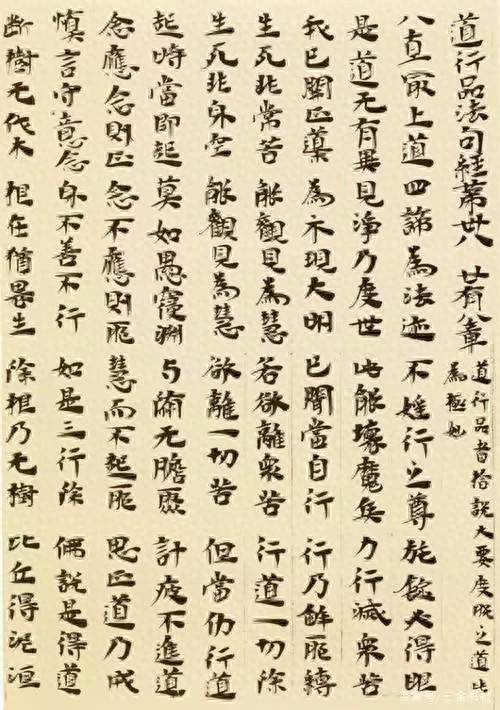 道行品法句經第卅八 廿有八章
道行品者指說大要度脫之道此
為極妙
八直最上道 四諦為法迹 不婬行之尊 施燈必得眼
是道无有異 見淨乃度世 此能壞魔兵 力行滅衆苦
我已開正道 為示現大明 已聞當自行 行乃解邪縛
生死非常苦 能觀見為慧 若欲離衆苦 行道一切除
生死非身空 能觀見為慧 欲離一切苦 但當仂行道
起時當即起 莫如愚覆淵 与墮无瞻聚 計疲不進道
念應念則正 念不應則邪 慧而不起邪 思正道乃成
慎言守意念 身不善不行 如是三行除 佛說是得道
断樹无伐本 根在猶畏生 除根乃无樹 比丘得泥洹